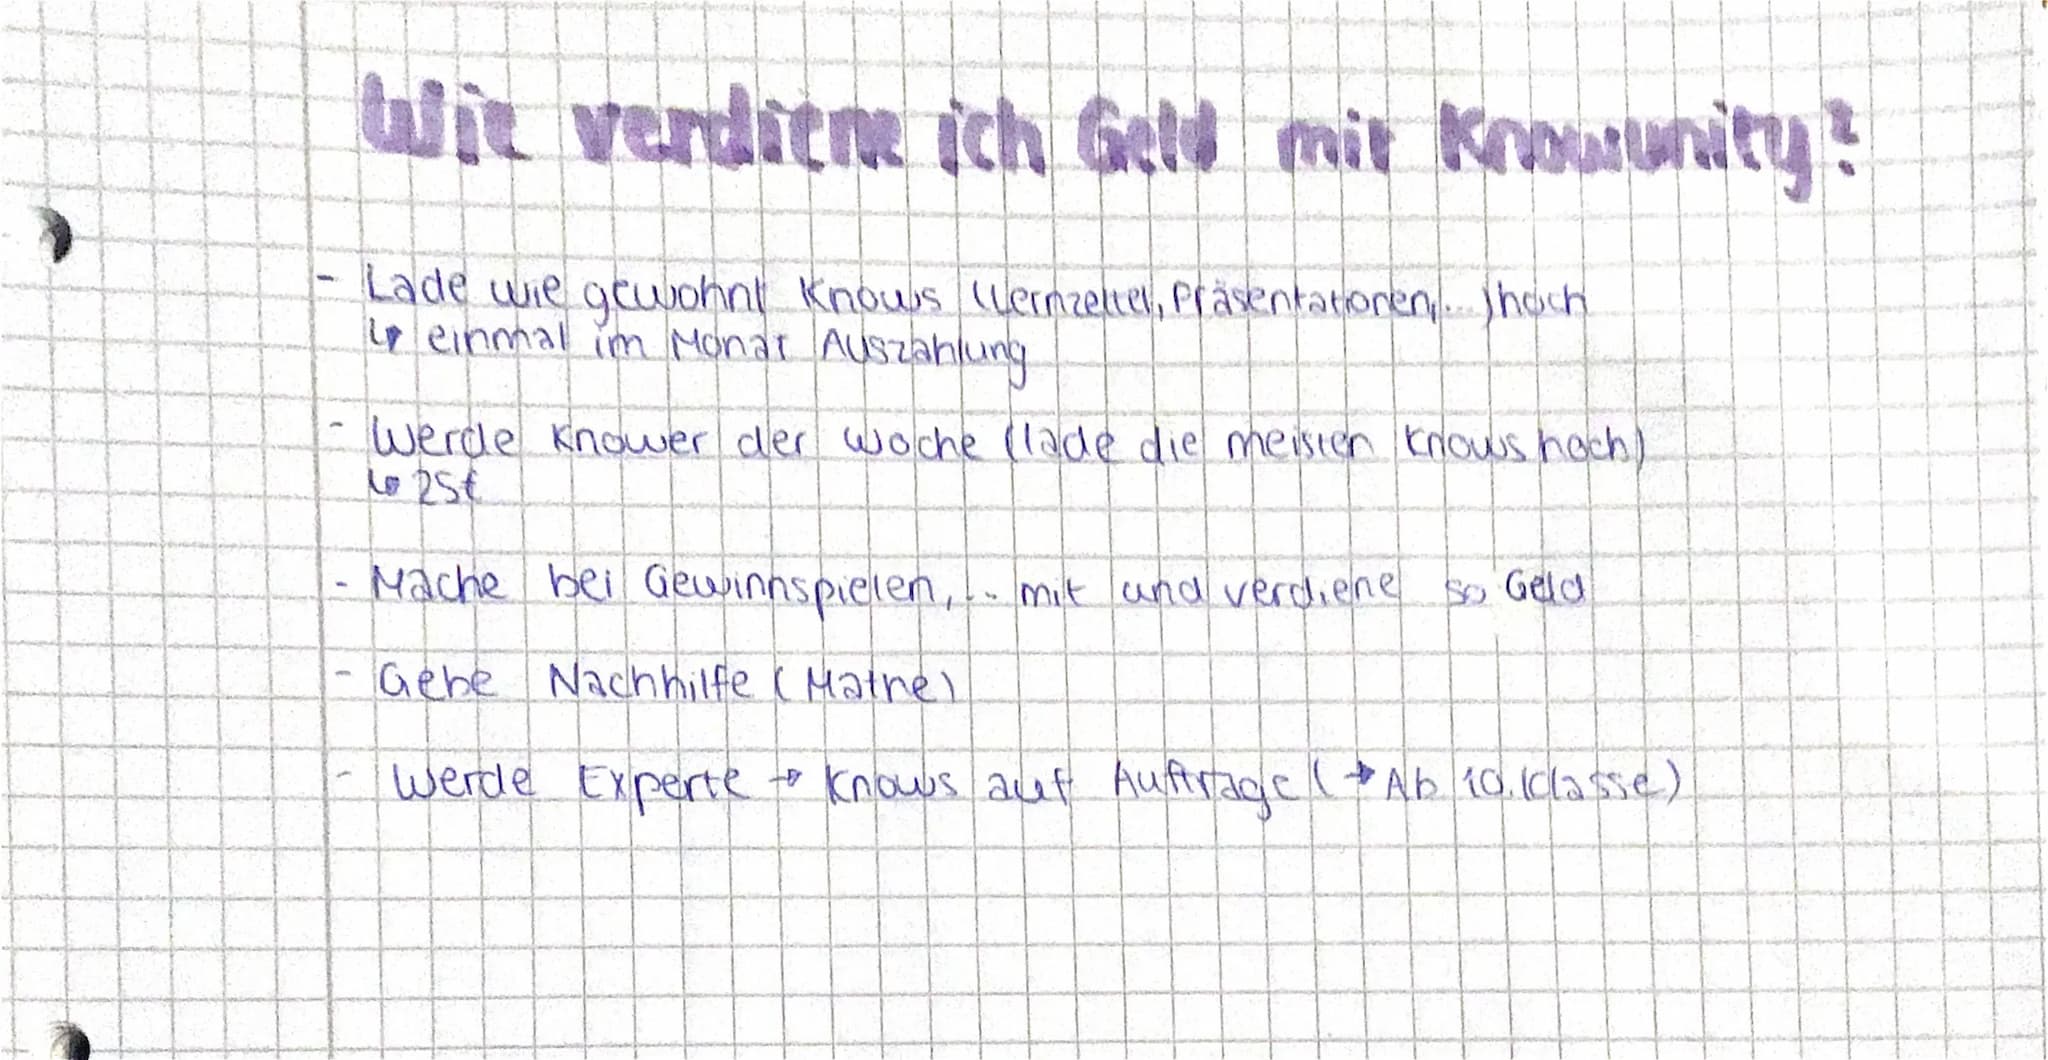 Wie verdiene ich Geld mit Knowunity?
- Lade wie gewohnt Knows (Lernzettel, Präsentationen,...) hoch
↳ einmal im Monat Auszahlung
- Werde Knower der Woche (lade die meisten Knows hoch)
↳ 25€
- Mache bei Gewinnspielen,... mit und verdiene so Geld
- Gebe Nachhilfe (Mathe)
- Werde Experte → Knows auf Aufträge (→ Ab 10. Klasse)